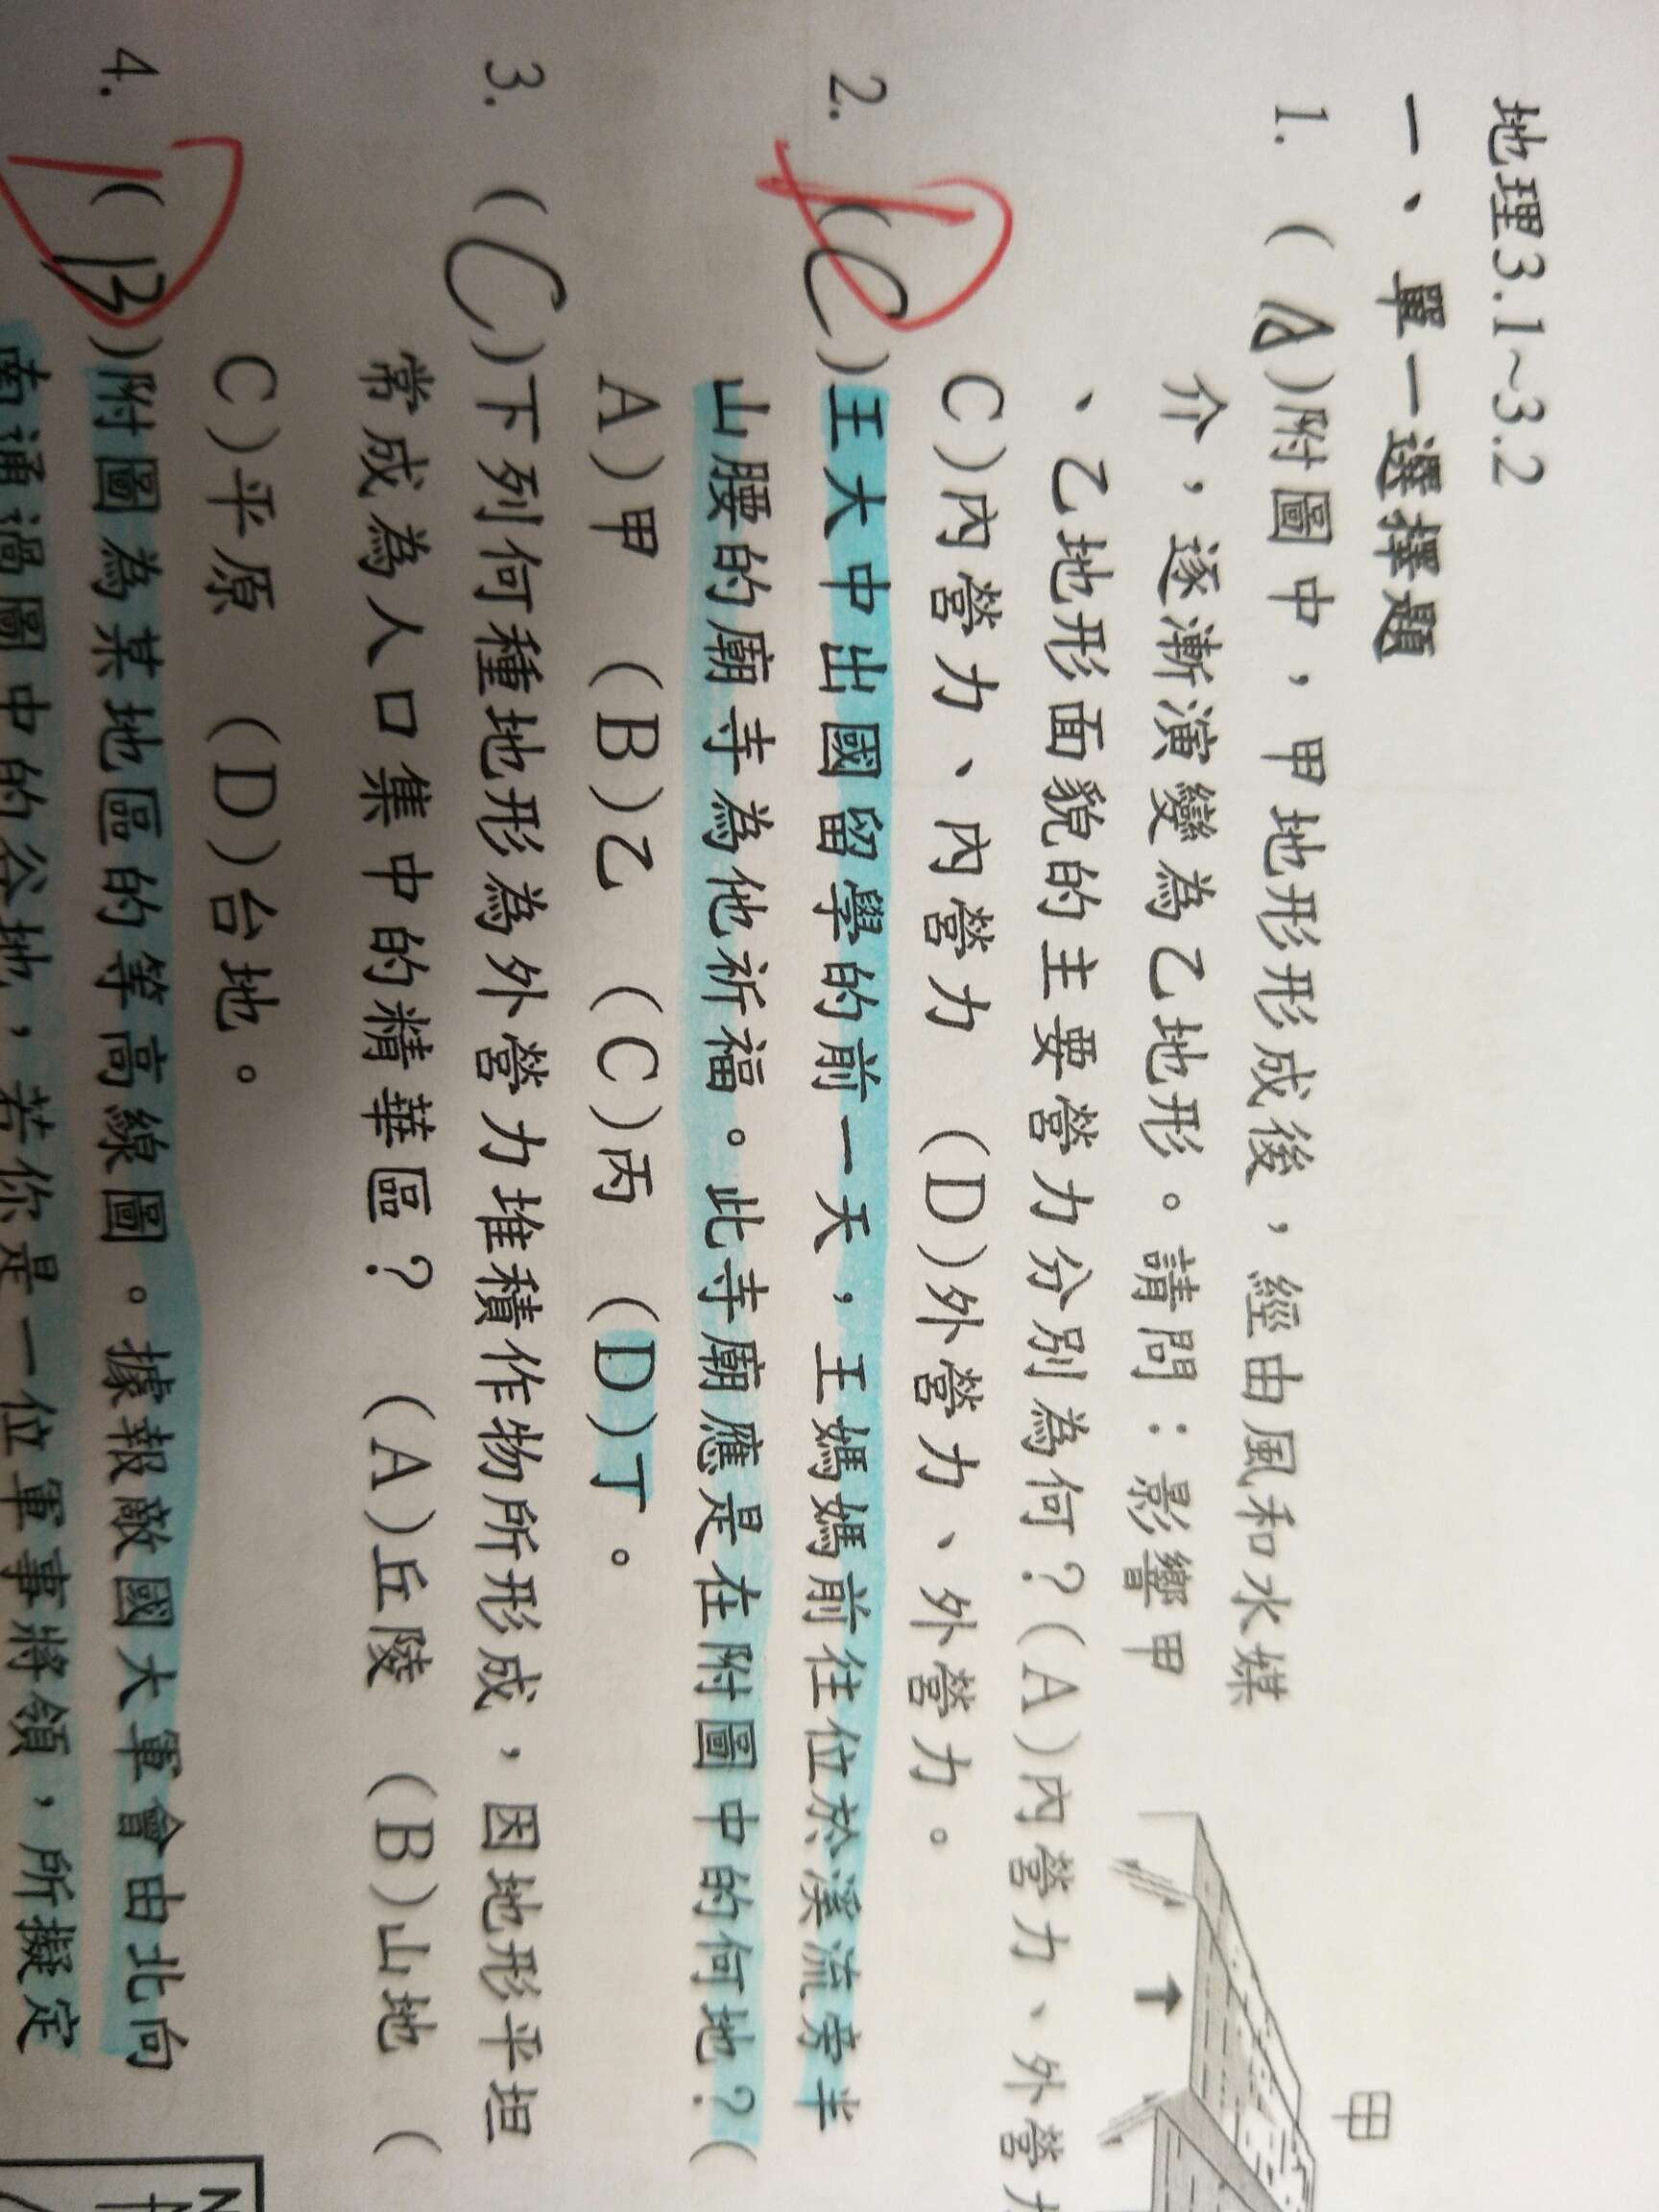 地理3.1~3.2
一、單一選擇題
1. (A)附圖中，甲地形形成後，經由風和水媒
介，逐漸演變為乙地形。請問：影響甲
、乙地形面貌的主要營力分別為何？(A)內營力、外營力
C)內營力、內營力 (D)外營力、外營力。
2. (C)王大中出國留學的前一天，王媽媽前往位於溪流旁半
D
山腰的廟寺為他祈福。此寺廟應是在附圖中的何地？(
A)甲 (B)乙 (C)丙 (D)丁。
3. (C)下列何種地形為外營力堆積作物所形成，因地形平坦
常成為人口集中的精華區？ (A)丘陵 (B)山地 (
C)平原 (D)台地。
4. (B)附圖為某地區的等高線圖。據報敵國大軍會由北向
D
南通過圖中的谷地，若你是一位軍事將領，所擬定
甲
N